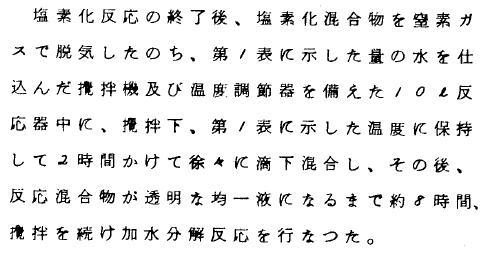 塩素化反応の終了後、塩素化混合物を窒素ガ
スで脱気したのち、第1表に示した量の水を仕
込んだ攪拌機及び温度調節器を備えた10ℓ反
応器中に、攪拌下、第1表に示した温度に保持
して2時間かけて徐々に滴下混合し、その後、
反応混合物が透明な均一液になるまで約8時間、
攪拌を続け加水分解反応を行なつた。